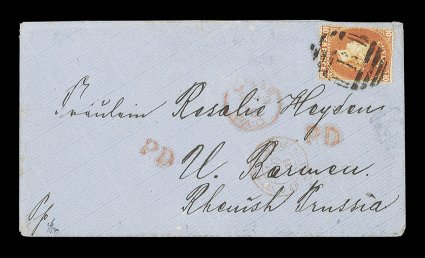 Fräulein Rosalie Heydens
PD
PD
U. Barmen.
Rhenish Prussia